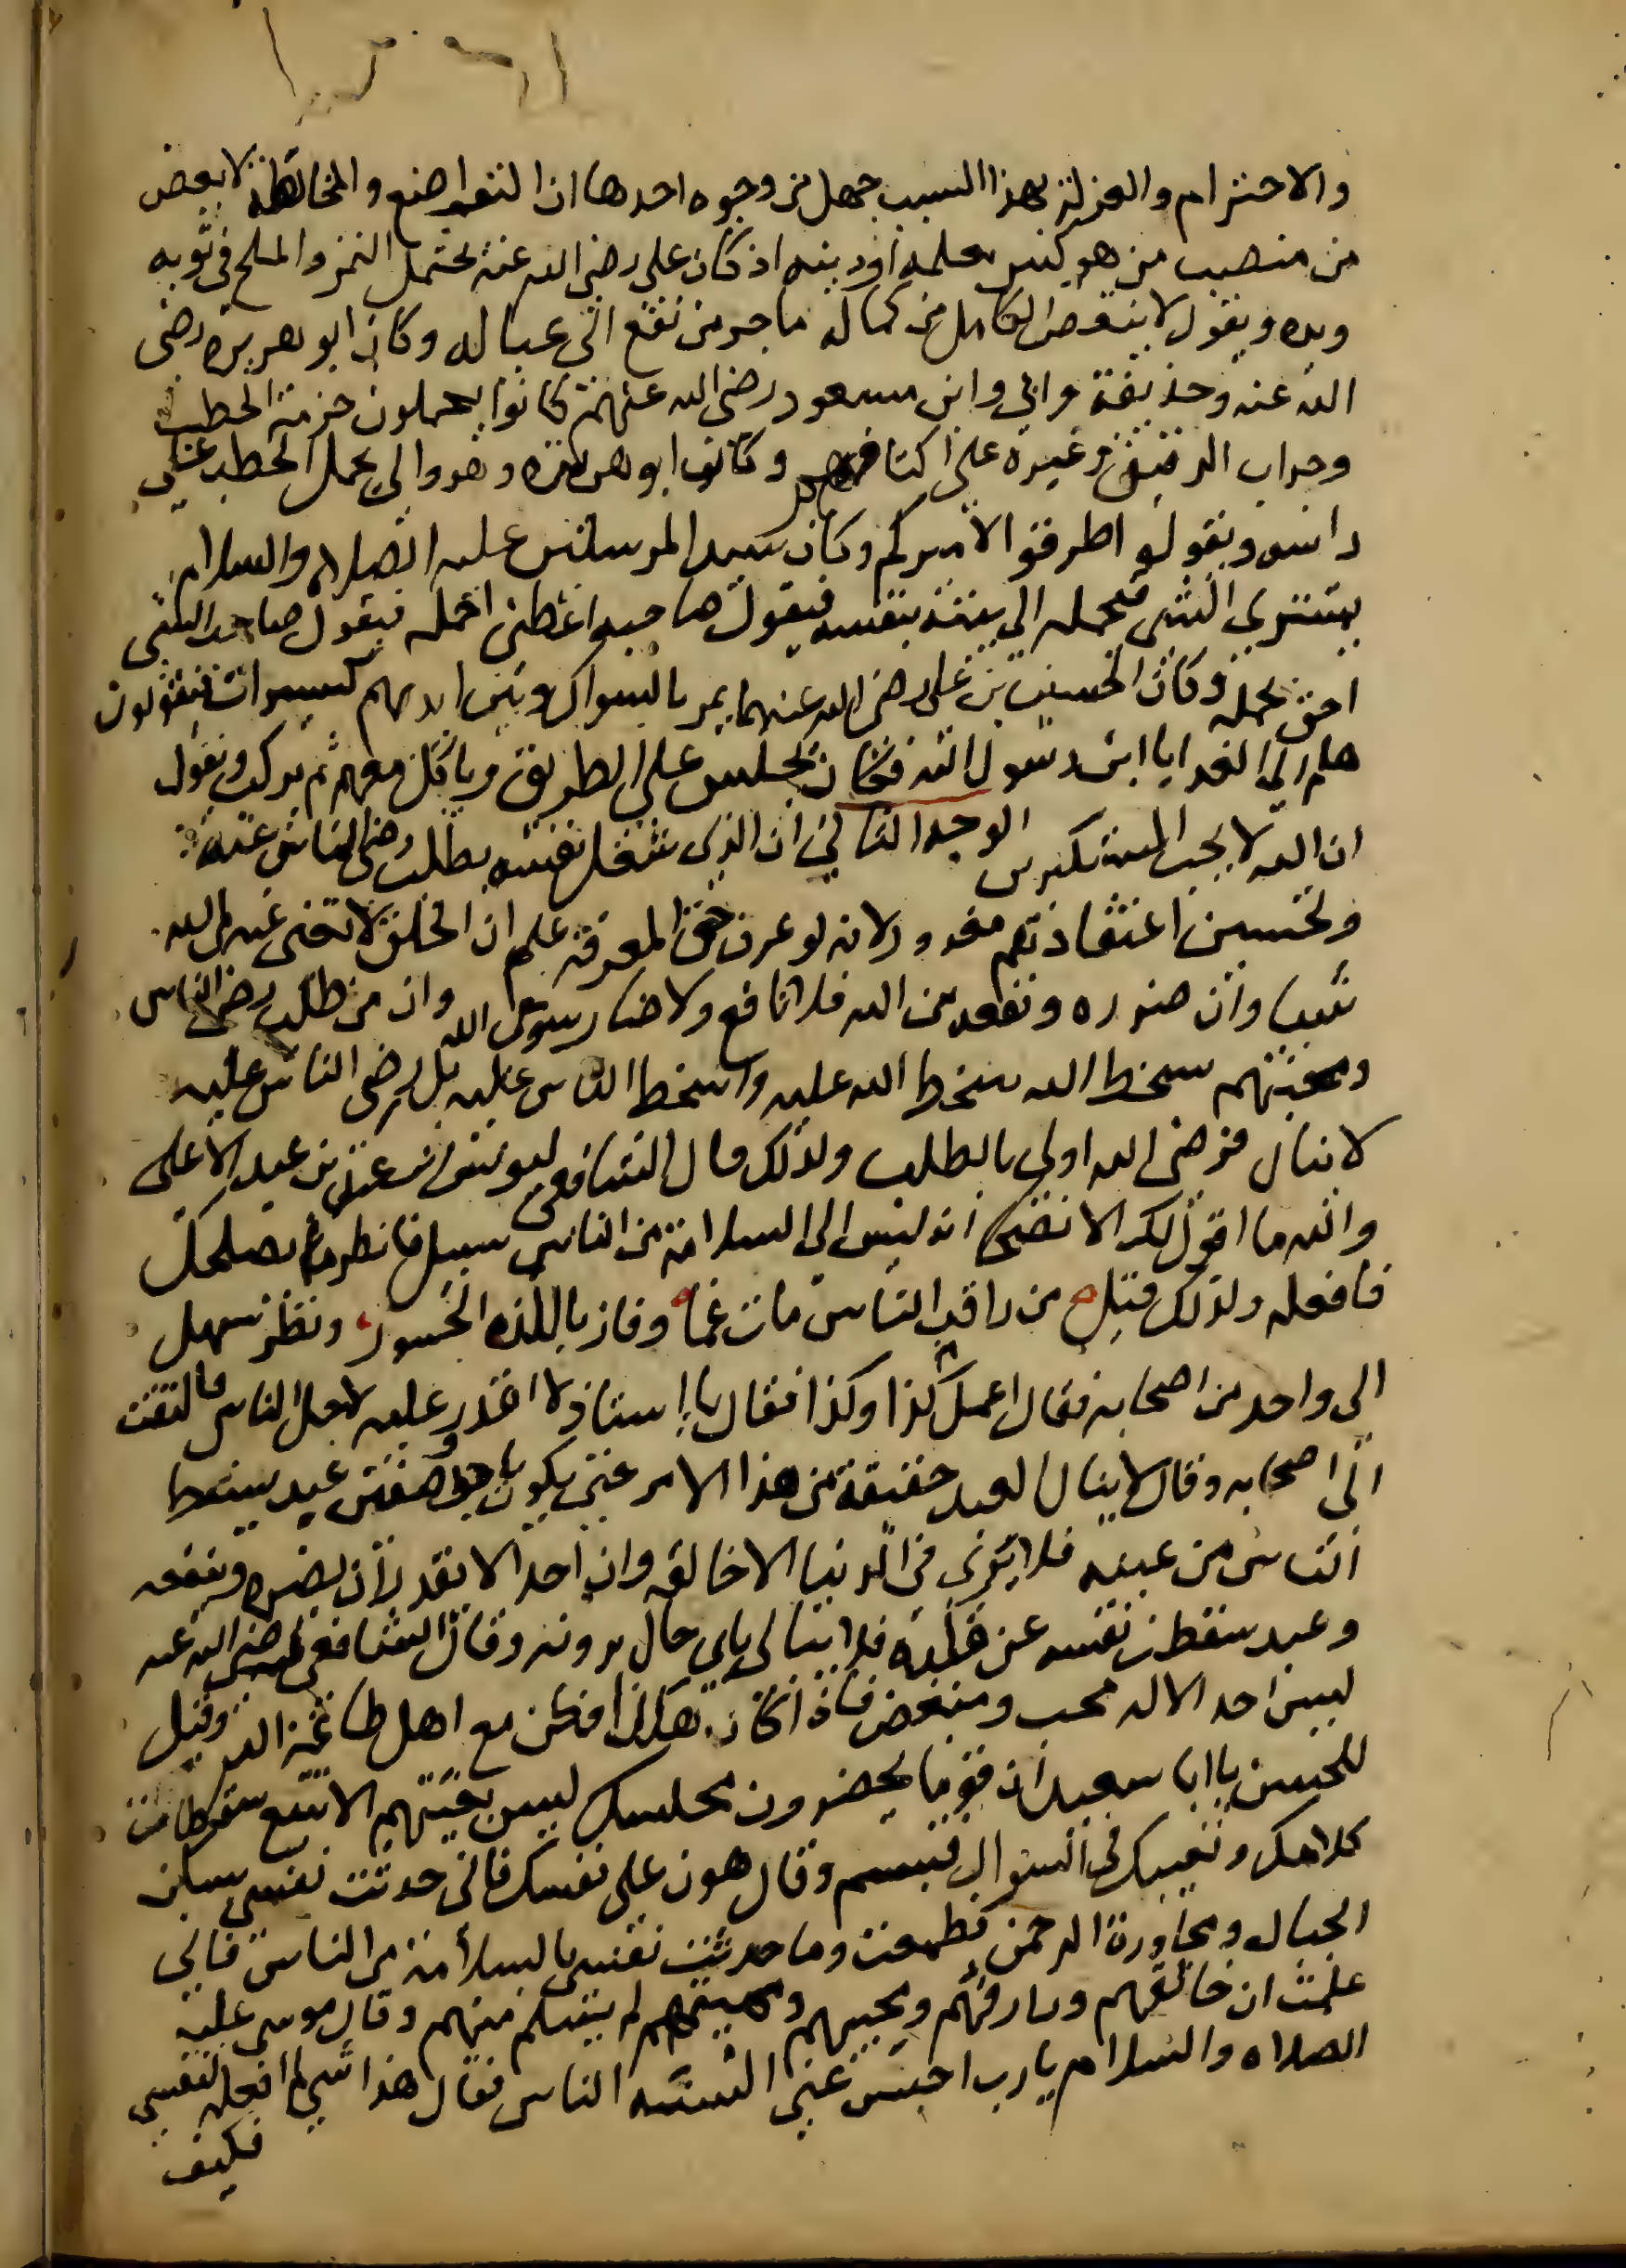 والاحترام والعزلة بهذا السبب جهل من وجوه احدها ان التواضع والمخالطة لا يغض
من منصب من هو كبير بعلمه او دينه اذ كان على رضى الله عنه يحتمل التمر والملح فى ثوبه
ويده ويقول لا ينقص الكامل من كماله ما جر من نفع الى عياله وكان ابو هريرة رضى
الله عنه وحذيفة وابى وابن مسعود رضى الله عنهم كانوا يحملون حزمة الحطب
وجراب الدقيق وغيره على اكتافهم وكان ابو هريرة وهو والى يحمل الحطب على
راسه ويقول اطرقوا لاميركم وكان سيد المرسلين عليه الصلاه والسلام
يشترى الشى فيحمله الى بيته بنفسه فيقول صاحبه اعطنى احمله فيقول صاحب الشى
احق بحمله وكان الحسين بن على رضى الله عنهما يمر بالسواك وبين ايديهم كسيرات فيقولون
هلم الى الغدا يا ابن رسول الله فكان يجلس على الطريق وياكل معهم ثم يركب ويقول
ان الله لا يحب المستكبرين الوجه الثانى ان الذى شغل نفسه بطلب رضى الناس عنه
وتحسين اعتقادهم مغرور لانه لو عرف حق المعرفة علم ان الخلق لا تغنى عنه من الله
شيا وان ضرره ونفعه من الله فلا نافع ولا ضار سوى الله وان من طلب رضى الناس
ومحبتهم بسخط الله سخط الله عليه واسخط الناس عليه بل رضى الناس عليه
لا ينال فرضى الله اولى بالطلب ولذلك قال الشافعى ليونس بن عبد الاعلى
والله ما اقول لك الا نصحا انه ليس الى السلامة من الناس سبيل فانظر ما يصلحك
فافعله ولذلك قيل من راقب الناس مات غما وفاز باللذه الجسور ونظر سهل
الى واحد من اصحابه فقال اعمل كذا وكذا فقال يا استاذ لا اقدر عليه لاجل الناس فالتفت
الى اصحابه وقال لا ينال العبد حقيقة من هذا الامر حتى يكون باحد وصفين عبد يسقط
الناس من عينه فلا يرى فى الدنيا الا خالقه وان احدا لا يقدر ان يضره وينفعه
وعبد سقطت نفسه عن قلبه فلا يبالى باى حال يرونه وقال الشافعى رضى الله عنه
ليس احد الا له محب ومبغض فاذا كان هكذا فكن مع اهل طاعة الله وقيل
للحسن يا ابا سعيد ان قوما يحضرون مجلسك ليس بغيتهم الا تتبع سقطات
كلامك وتعييبك فى السوال فتبسم وقال هون على نفسك فانى حدثت نفسى بسكنى
الجنان ومجاورة الرحمن فطمعت وما حدثت نفسى بالسلامة من الناس فانى
علمت ان خالقهم ورازقهم ومحييهم ومميتهم لم يسلم منهم وقال موسى عليه
الصلاه والسلام يا رب احبس عنى السنه الناس فقال هذا شى لم افعله لنفسى
فكيف